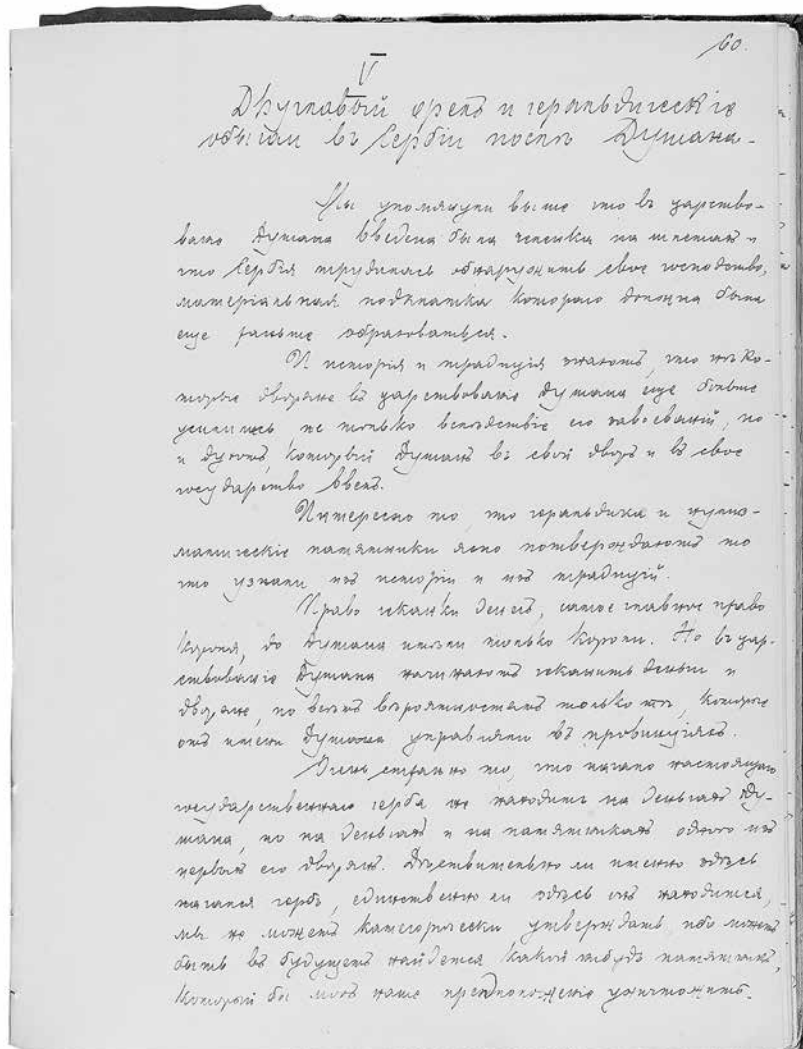 60.
V
Двуглавый орелъ и геральдическіе
обычаи въ Сербіи послѣ Душана.
Мы упомянули выше что въ царство-
ваніе Душана введена была челенка на шлемахъ и
что Сербія трудилась обнаружить свое господство,
матеріальная подкладка котораго должна была
еще раньше образоваться.
И исторія и традиція знаютъ, что нѣко-
торые дворяне въ царствованіе Душана еще больше
усилились не только вслѣдствіе его завоеваній, но
и духомъ, который Душанъ въ свой дворъ и въ свое
государство ввелъ.
Интересно то, что геральдика и нумиз-
матическіе памятники ясно потверждаютъ то
что узнали изъ исторіи и изъ традицій.
Право чеканки денегъ, самое главное право
короля, до Душана имѣли только короли. Но въ цар-
ствованіе Душана начинаютъ чеканить деньги и
дворяне, по всѣмъ вѣроятностямъ только тѣ, которые
отъ имени Душана управляли въ провинціяхъ.
Очень странно то, что начало настоящаго
государственнаго герба не находимъ на деньгахъ Ду-
шана, но на деньгахъ и на памятникахъ одного изъ
первыхъ его дворянъ. Дѣствительно ли именно здѣсь
начался гербъ, единственно ли здѣсь онъ находится,
мы не можемъ категорически утверждать, ибо можетъ
быть въ будущемъ найдется какой нибудь памятникъ,
который бы могъ наше предположеніе уничтожить.